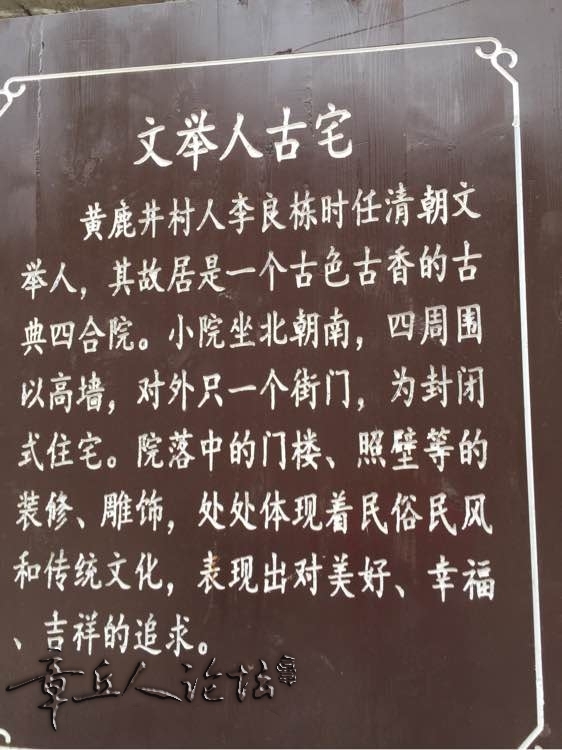 文举人古宅
黄鹿井村人李良栋时任清朝文
举人，其故居是一个古色古香的古
典四合院。小院坐北朝南，四周围
以高墙，对外只一个街门，为封闭
式住宅。院落中的门楼、照壁等的
装修、雕饰，处处体现着民俗民风
和传统文化，表现出对美好、幸福
、吉祥的追求。
章丘人论坛